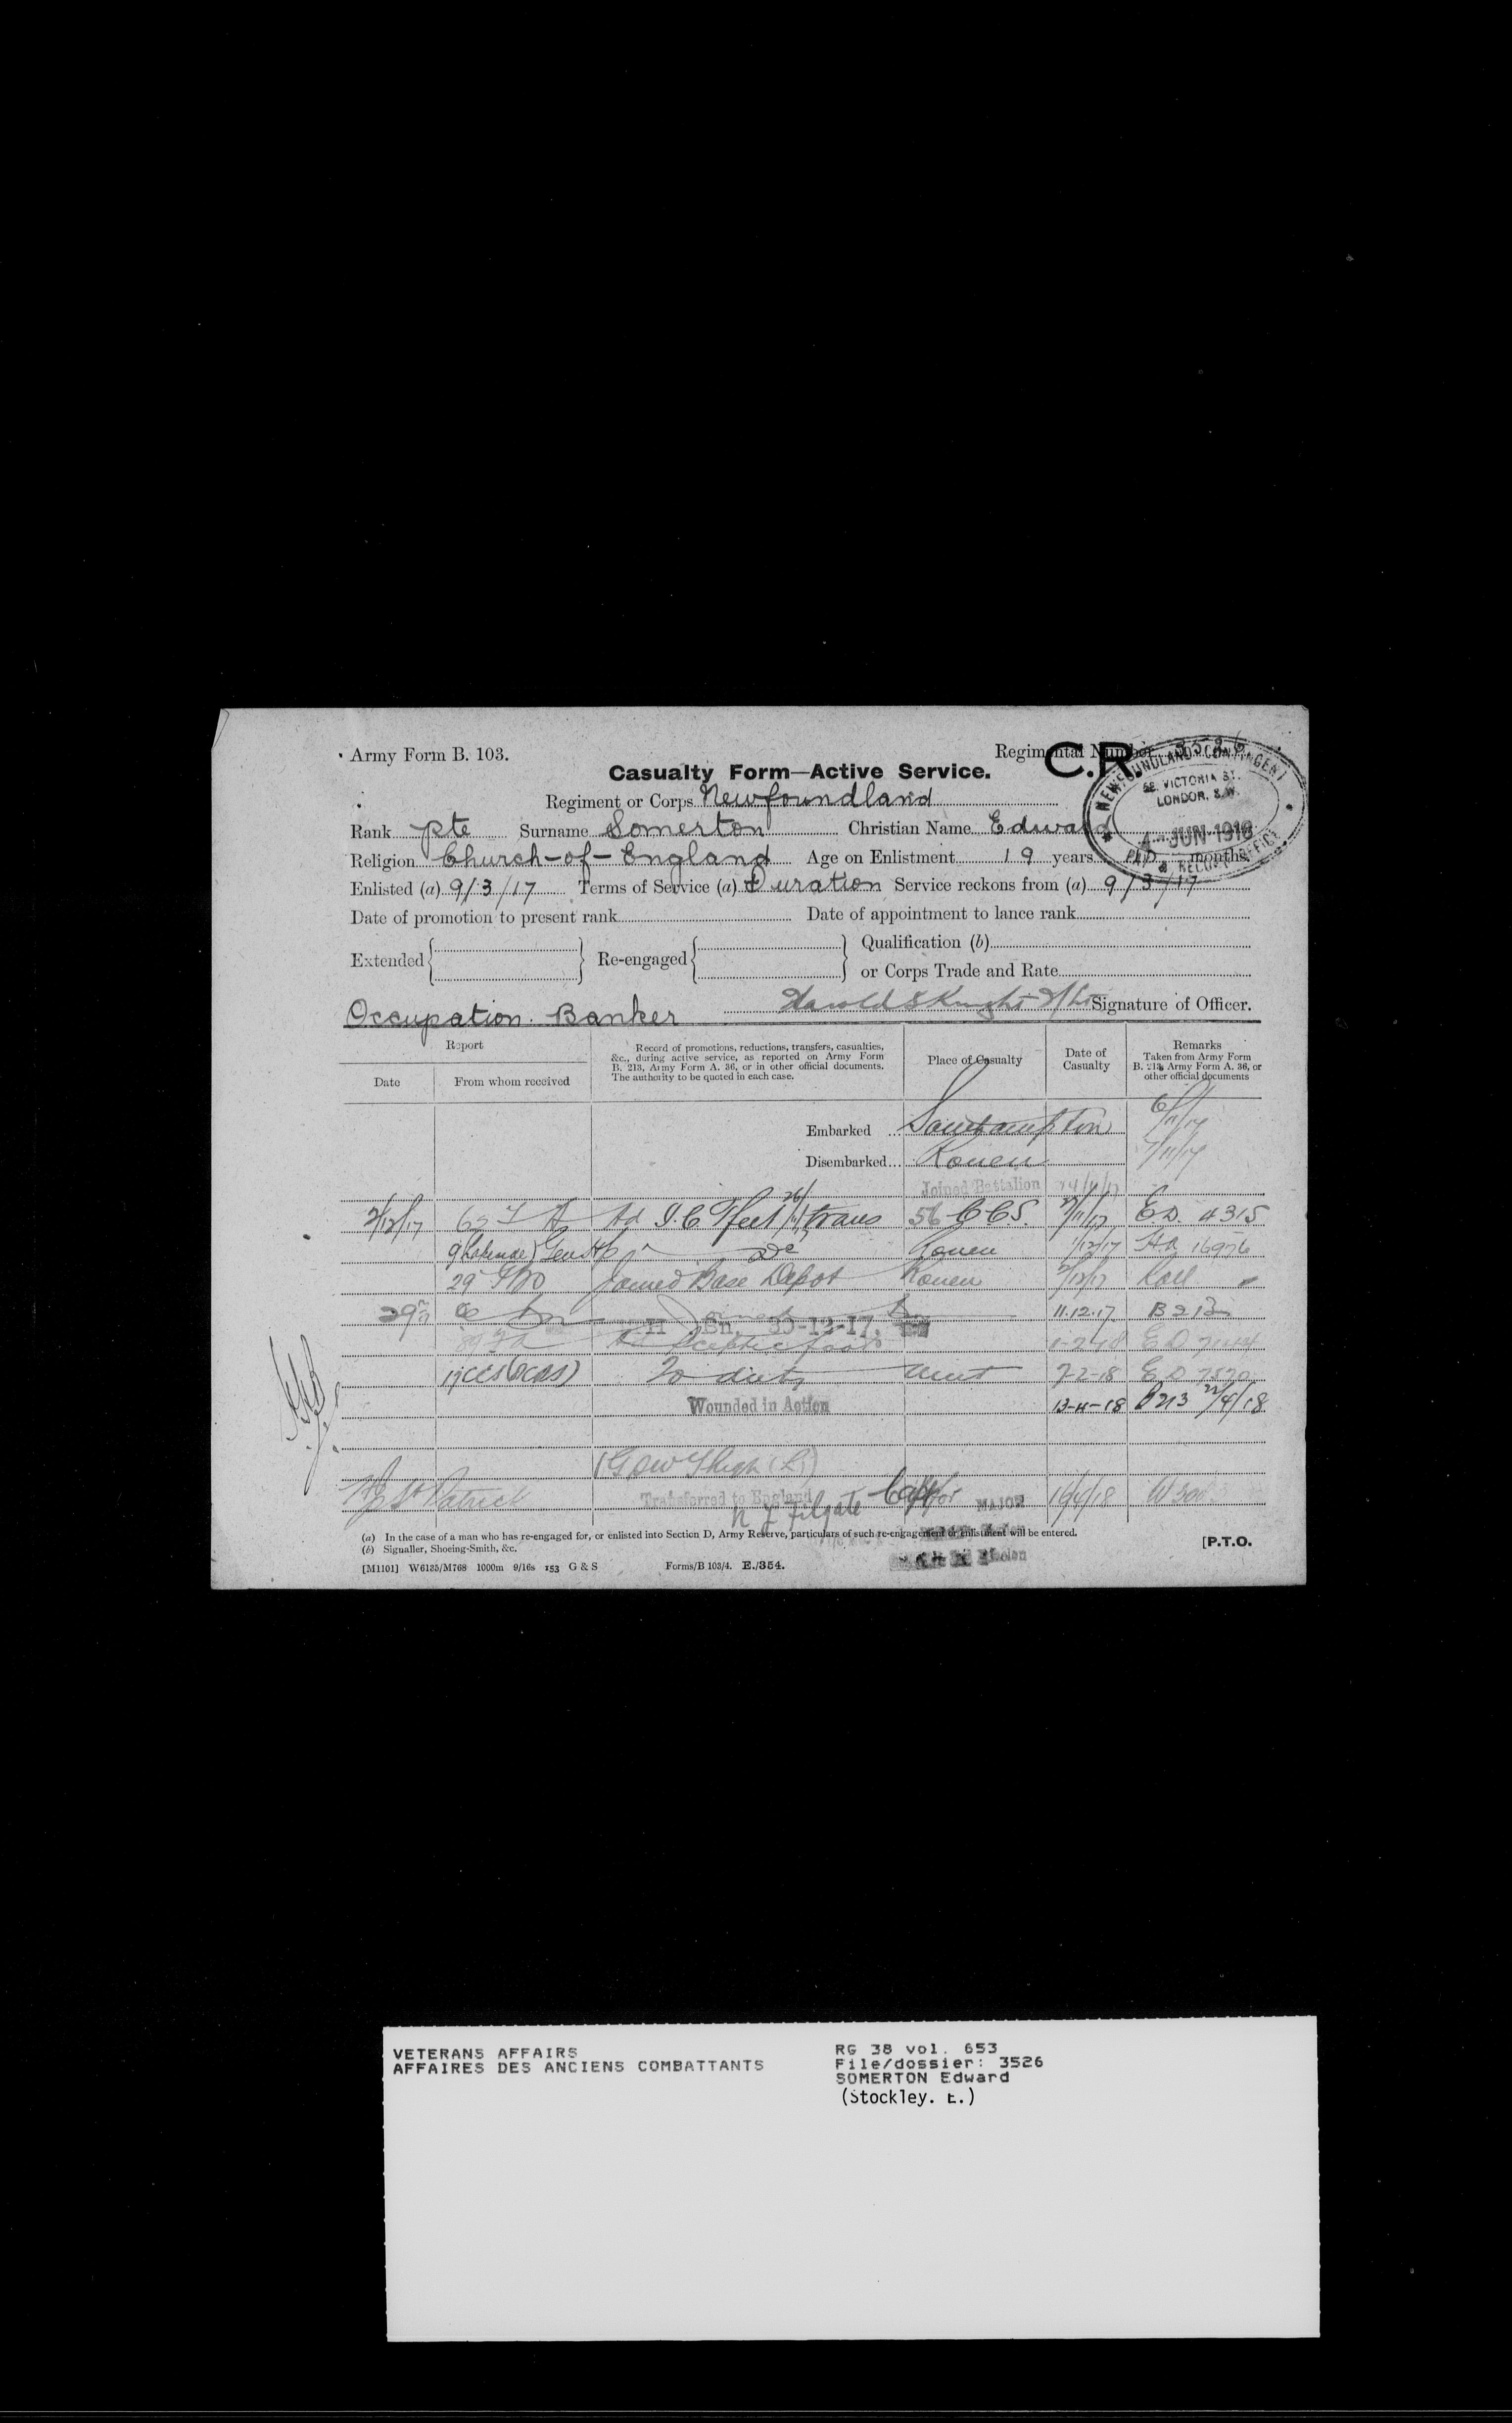 Army Form B. 103.
Regimental Number
C.R
Casualty Form—Active Service.
NEWFOUNDLAND CONTINGENT
58, VICTORIA ST.
LONDON, S.W.
4 - JUN 1918
PAY & RECORD OFFICE
Regiment or Corps Newfoundland
Rank pte Surname Somerton Christian Name Edward
Religion Church-of-England Age on Enlistment 19 years months
Enlisted (a) 9/3/17 Terms of Service (a) Duration Service reckons from (a) 9/3/17
Date of promotion to present rank Date of appointment to lance rank
Extended Re-engaged Qualification (b)
or Corps Trade and Rate
Occupation. Banker Harold S Knight 2/Lt Signature of Officer.
Report
Date From whom received
Record of promotions, reductions, transfers, casualties,
&c., during active service, as reported on Army Form
B. 213, Army Form A. 36, or in other official documents.
The authority to be quoted in each case.
Place of Casualty
Date of
Casualty
Remarks
Taken from Army Form
B. 213, Army Form A. 36, or
other official documents
Embarked Southampton 6/11/17
Disembarked Rouen 7/11/17
Joined Battalion
2/12/17 Ad I.C.T feet trans 56 CCS. ED. 4315
9 (Lakenae) Gen Hp Do Rouen 1/12/17 HA
29 IBD Joined Base Depot Rouen Roll
Bn. 30-12-17 11.12.17 B 213
Ad 1-2-18 ED
To duty Unit 7-2-18 ED
Wounded in Action 13-4-18 B213 22/4/18
(GSW Thigh (L))
St Patrick Transferred to England 19/4/18 W
N J Filgate Capt for MAJOR
(a) In the case of a man who has re-engaged for, or enlisted into Section D, Army Reserve, particulars of such re-engagement or enlistment will be entered.
(b) Signaller, Shoeing-Smith, &c.
[P.T.O.
[M1101] W6135/M768 1000m 9/16s 153 G & S Forms/B 103/4. E./354.
VETERANS AFFAIRS
AFFAIRES DES ANCIENS COMBATTANTS
RG 38 vol. 653
File/dossier: 3526
SOMERTON Edward
(Stockley. E.)